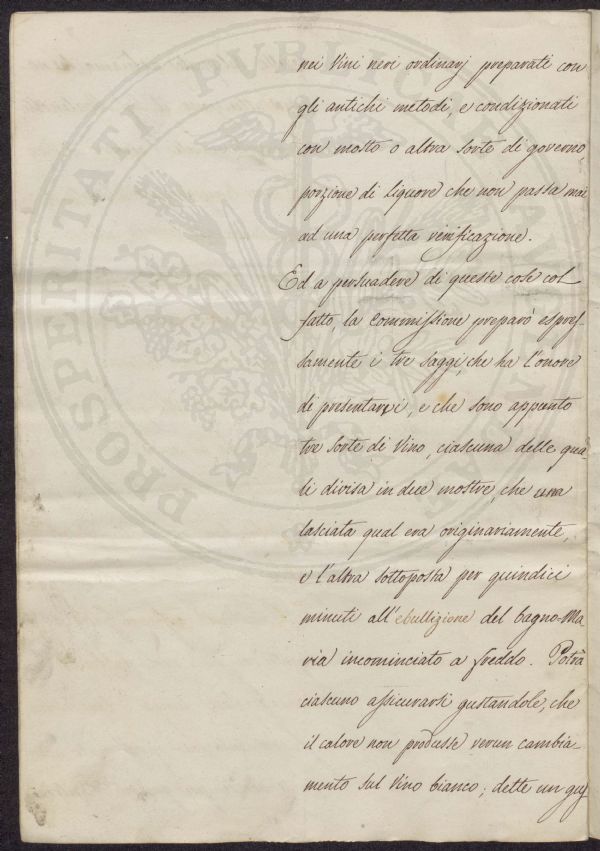 nei Vini neri ordinarj preparati con
gli antichi metodi, e condizionati
con mosto o altra sorte di governo,
porzione di liquore che non passa mai
ad una perfetta vinificazione.
Ed a persuadere di queste cose col
fatto, la Commissione preparò espres-
samente i tre saggi, che ha l'onore
di presentarvi, e che sono appunto
tre sorte di Vino, ciascuna delle qua-
li divisa in due mostre, che una
lasciata qual era originariamente,
e l'altra sottoposta per quindici
minuti all'ebullizione del bagno-Ma-
ria incominciato a freddo. Potrà
ciascuno assicurarsi gustandole, che
il calore non produsse verun cambia-
mento sul Vino bianco; dette un gu
PROSPERITATI PUBLICAE